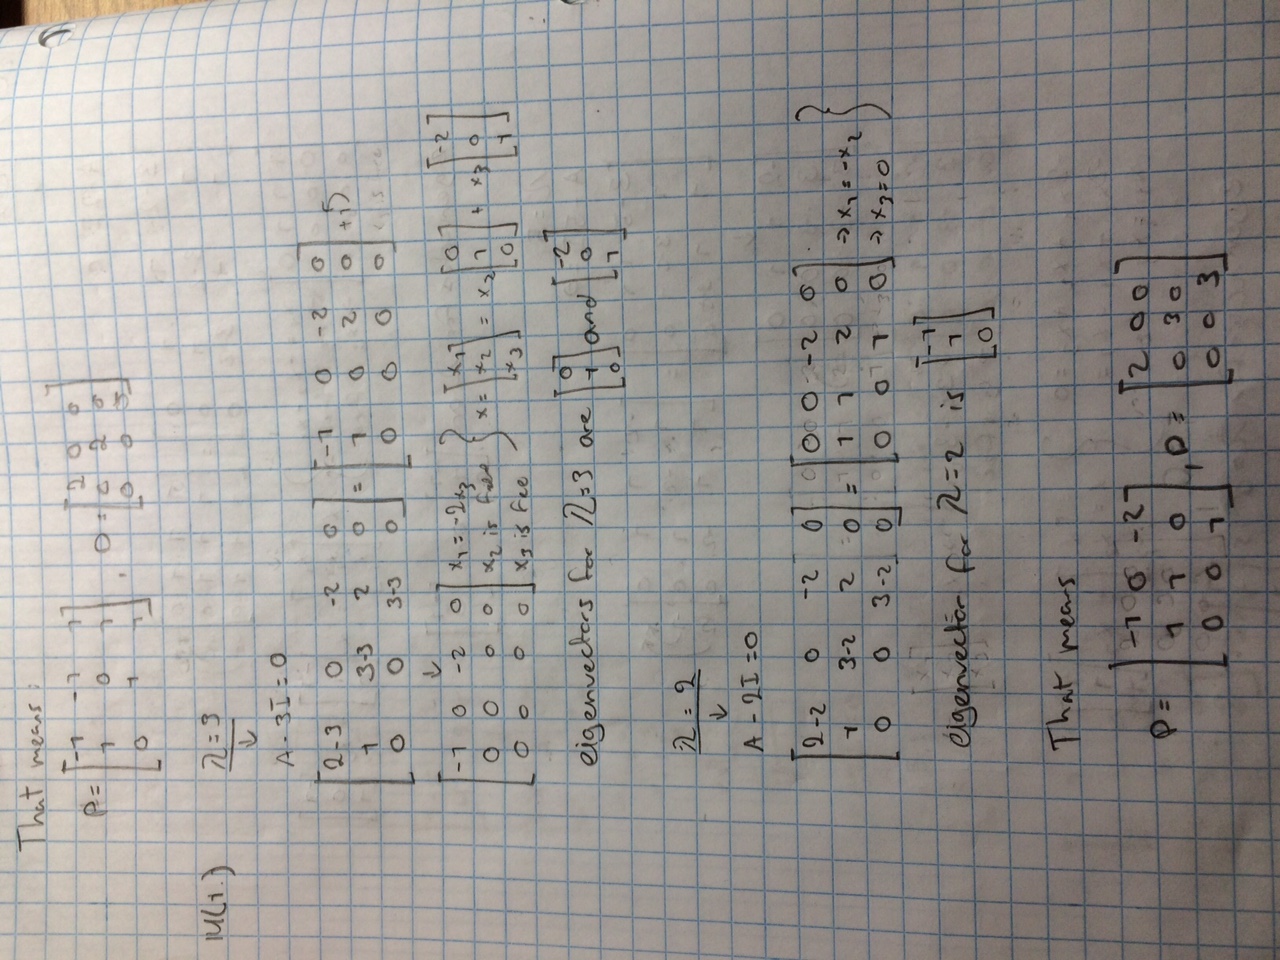 That means:
P = [ -1 -1 1 ; 1 0 1 ; 0 1 1 ] , D = [ 2 0 0 ; 0 2 0 ; 0 0 5 ]
λ = 3
↓
A - 3I = 0
[ 2-3 0 -2 0 ; 1 3-3 2 0 ; 0 0 3-3 0 ] = [ -1 0 -2 0 ; 1 0 2 0 ; 0 0 0 0 ]
↓
[ -1 0 -2 0 ; 0 0 0 0 ; 0 0 0 0 ] x₁ = -2x₃
x₂ is free
x₃ is fee
} x = [ x₁ ; x₂ ; x₃ ] = x₂ [ 0 ; 1 ; 0 ] + x₃ [ -2 ; 0 ; 1 ]
eigenvectors for λ=3 are [ 0 ; 1 ; 0 ] and [ -2 ; 0 ; 1 ]
λ = 2
↓
A - 2I = 0
[ 2-2 0 -2 0 ; 1 3-2 2 0 ; 0 0 3-2 0 ] = [ 0 0 -2 0 ; 1 1 2 0 ; 0 0 1 0 ] ⇒ x₁ = -x₂
⇒ x₃ = 0 }
eigenvector for λ=2 is [ -1 ; 1 ; 0 ]
That means
P = [ -1 0 -2 ; 1 1 0 ; 0 0 1 ] , D = [ 2 0 0 ; 0 3 0 ; 0 0 3 ]